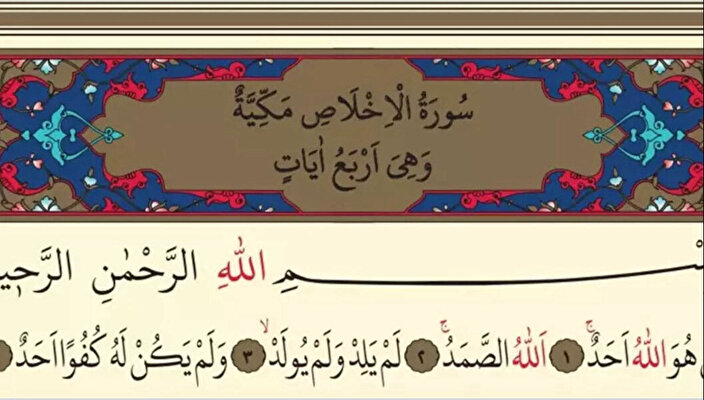 سُورَةُ الْاِخْلَاصِ مَكِّيَّةٌ
وَهِىَ اَرْبَعُ اٰيَاتٍ
اللّٰهِ الرَّحْمٰنِ
هُوَ اللّٰهُ اَحَدٌۚ ﴿١﴾ اَللّٰهُ الصَّمَدُۚ ﴿٢﴾ لَمْ يَلِدْ وَلَمْ يُولَدْۙ ﴿٣﴾ وَلَمْ يَكُنْ لَهُ كُفُوًا اَحَدٌ